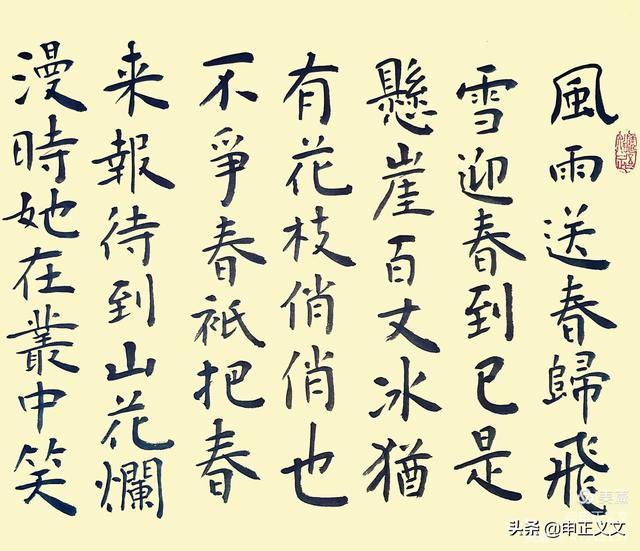 風雨送春歸飛
雪迎春到已是
懸崖百丈冰猶
有花枝俏俏也
不爭春祇把春
来報待到山花爛
漫時她在叢中笑
头条 @申正义文